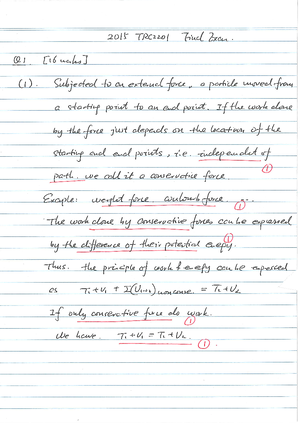 2015 TRC2201 Final Exam.
Q1. [16 marks]
(1). Subjected to an external force, a particle moved from
a starting point to an end point. If the work done
by the force just depends on the location of the
starting and end points, i.e. independent of
path. we call it a conservative force.
①
Example: weight force. coulomb force. ...
①
The work done by conservative forces can be expressed
by the difference of their potential energy.
Thus. the principle of work & energy can be expressed
as T₁+V₁ + Σ(U₁→₂)noncons = T₂+V₂
If only conservative force do work.
①
We have. T₁+V₁ = T₂+V₂.
①